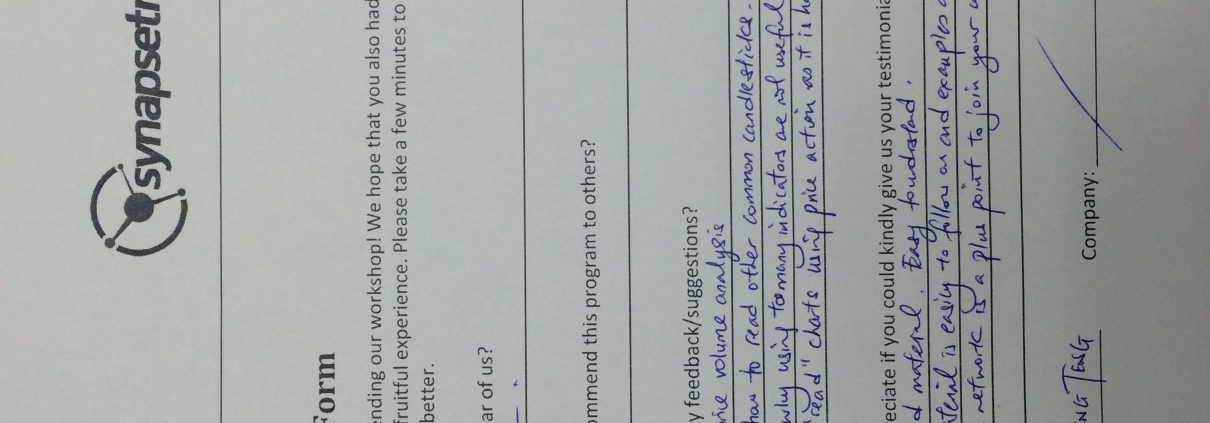 synapsetr
Form
ending our workshop! We hope that you also had
fruitful experience. Please take a few minutes to
better.
ar of us?
ommend this program to others?
y feedback/suggestions?
volume analysis
how to read other common candlesticks.
why using to many indicators are not useful
read" charts using price action as it is
eciate if you could kindly give us your testimonia
material. Easy to understand.
is easily to follow on and examples
network is a plus point to join your
NG TENG Company: